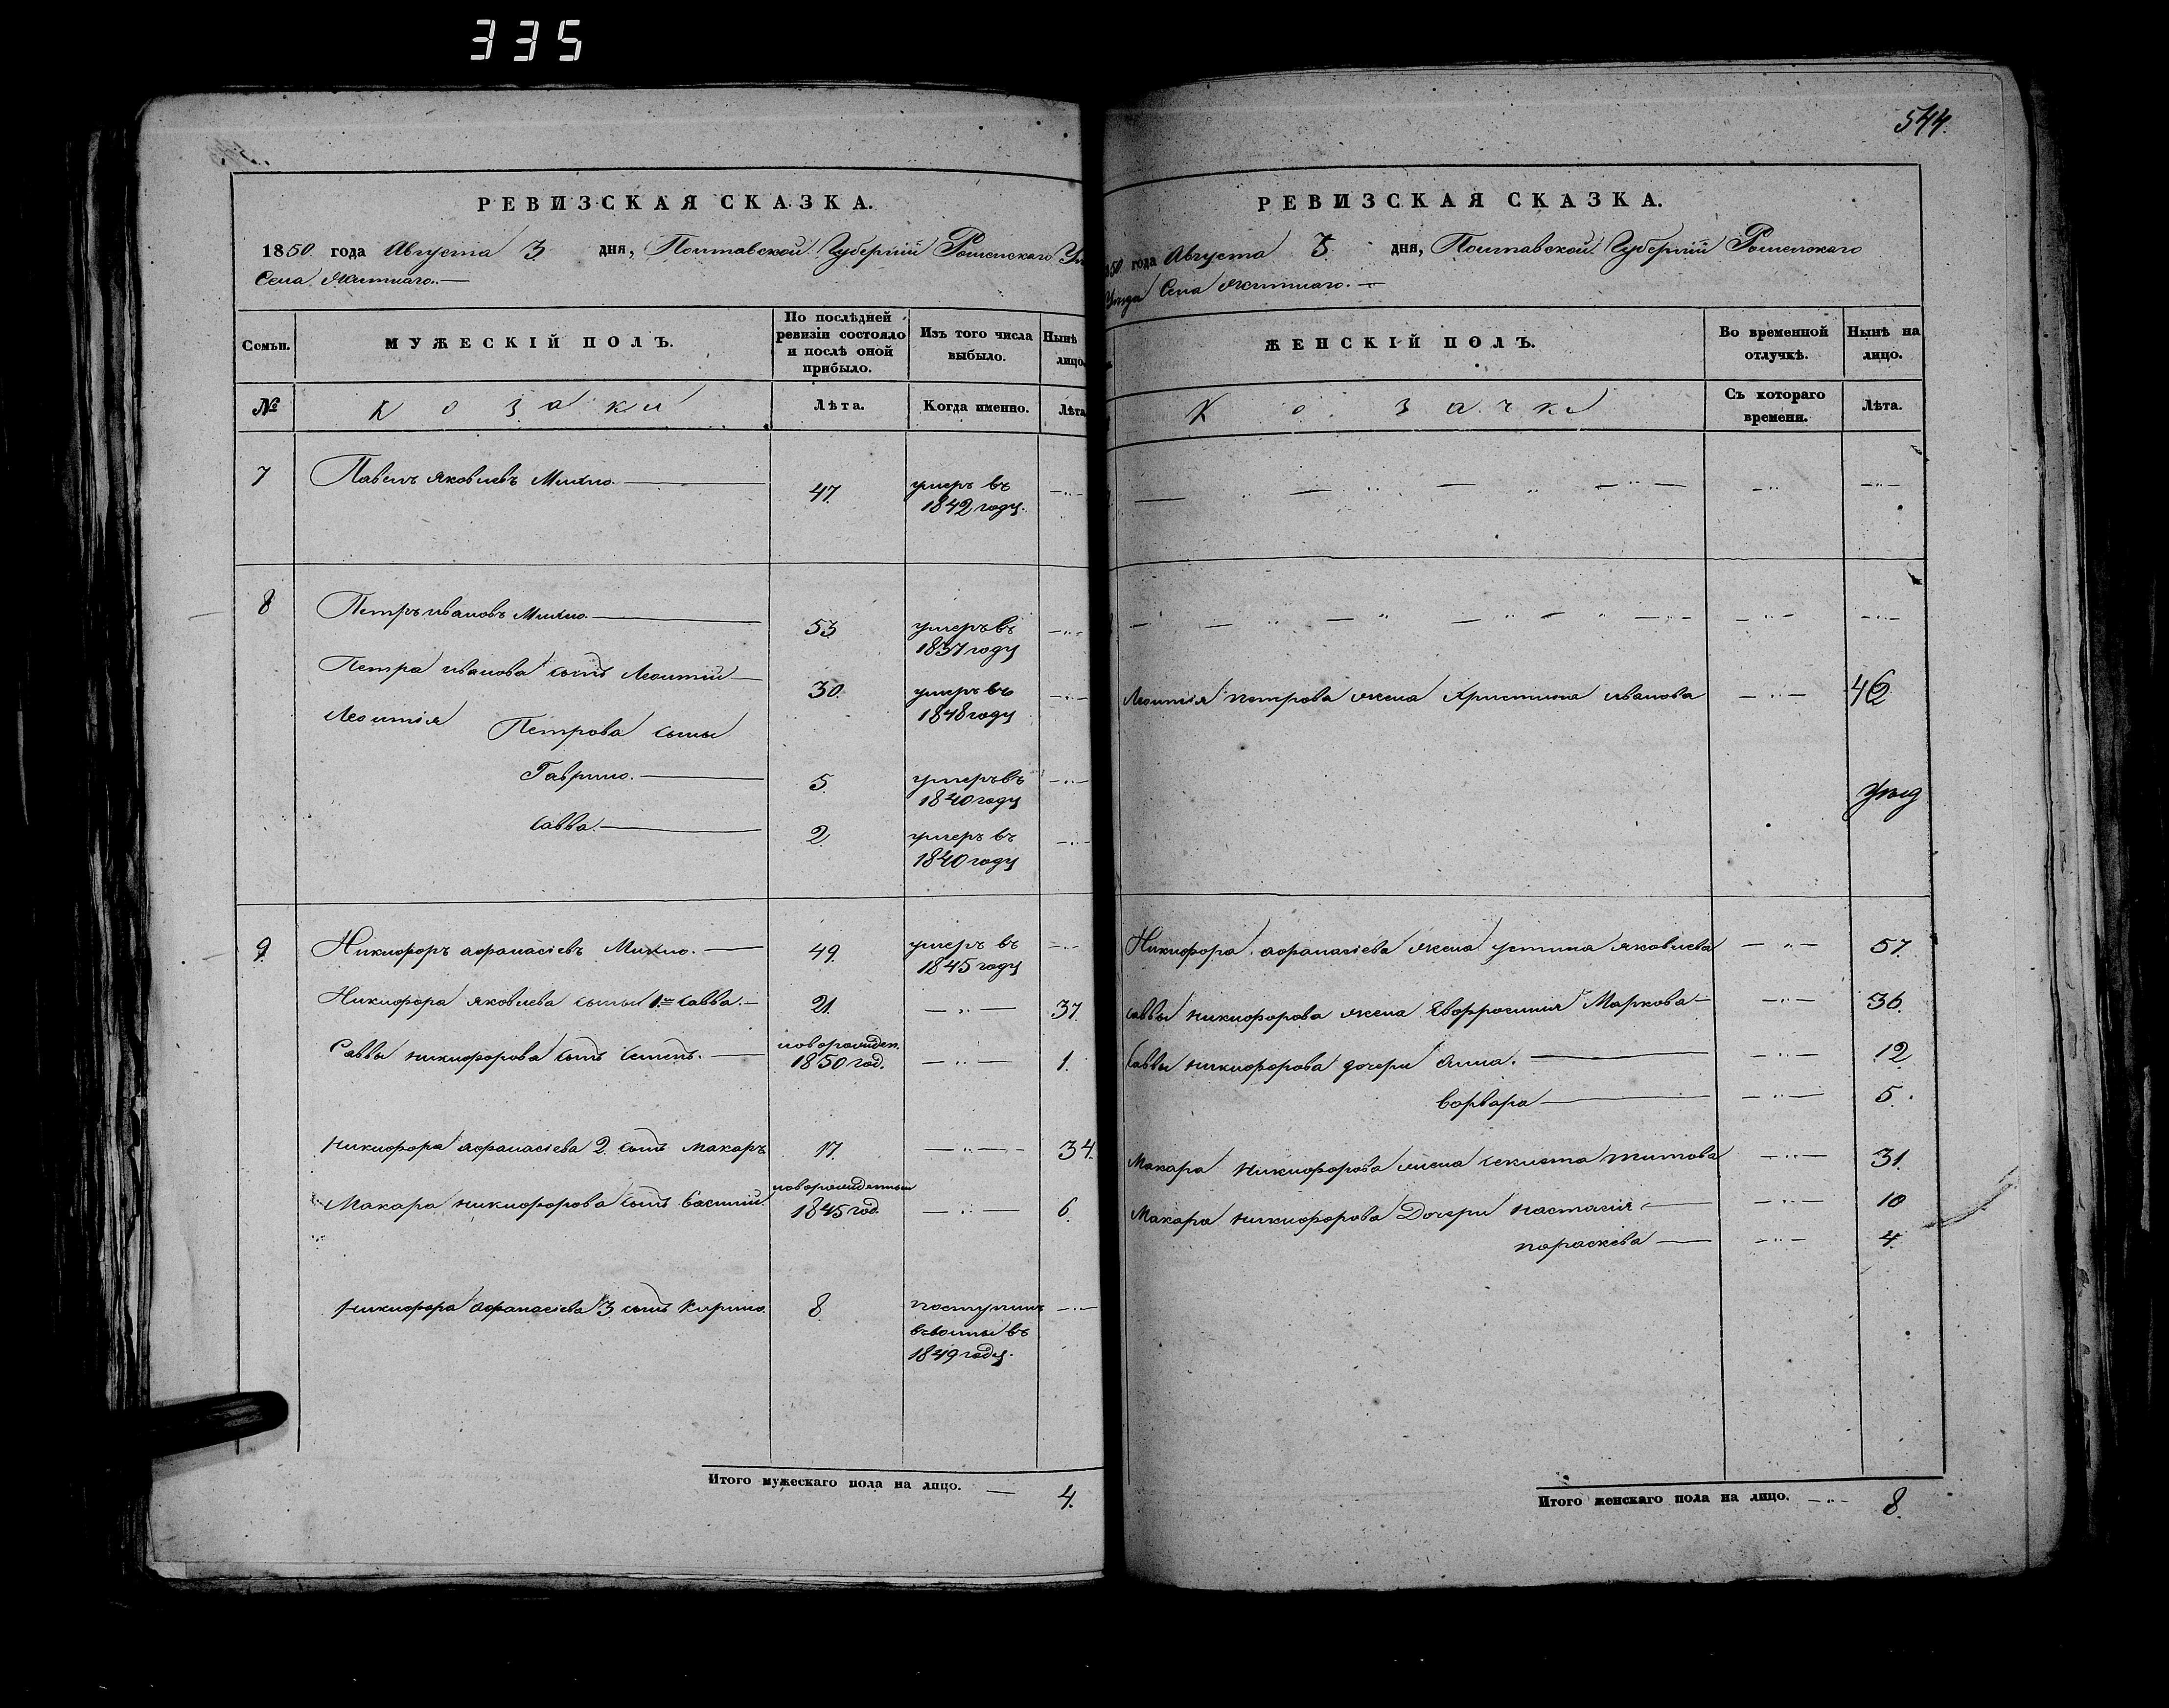 335
РЕВИЗСКАЯ СКАЗКА.
1850 года Августа 3 дня, Полтавской Губерніи Роменскаго
Села Житнаго.
Семьи.
МУЖЕСКІЙ ПОЛЪ.
По послѣдней ревизіи состояло и послѣ оной прибыло.
Изъ того числа выбыло.
Нынѣ лицо
№
Козаки
Лѣта.
Когда именно.
Лѣта
7 Павелъ Яковлевъ Михно. 47. умеръ въ
1842 году.
8 Петръ Ивановъ Михно. 53 умеръ въ
1837 году
Петра Иванова сынъ Леонтій 30. умеръ въ
1848 году
Леонтія Петрова сыны
Гаврило. 5. умеръ въ
1840 году
Савва. 2. умеръ въ
1840 году
9. Никифоръ Афанасіевъ Михно. 49. умеръ въ
1845 году
Никифора Яковлева сыны 1й Савва. 21. 37
Саввы Никифорова сынъ новорожден.
1850 год. 1.
Никифора Афанасіева 2. сынъ Макаръ 17. 34.
Макара Никифорова сынъ Василій новорожденный
1845 год. 6.
Никифора Афанасіева 3 сынъ Кирило. 8. поступилъ
въ
1849 году.
Итого мужескаго пола на лицо. 4.
544.
РЕВИЗСКАЯ СКАЗКА.
850 года Августа 3 дня, Полтавской Губерніи Роменскаго
Уѣзда Села Житнаго.
ЖЕНСКІЙ ПОЛЪ.
Во временной отлучкѣ.
Нынѣ на лицо.
Козачки
Съ котораго времени.
Лѣта.
Леонтія Петрова жена Христина Иванова 42
Никифора Афанасіева жена Устина Яковлева 57.
Саввы Никифорова жена Евфросинія Маркова 36.
Саввы Никифорова дочери Анна. 12
Варвара 5.
Макара Никифорова жена Титова 31.
Макара Никифорова Дочери Настасія 10
Параскева 4.
Итого женскаго пола на лицо. 8.